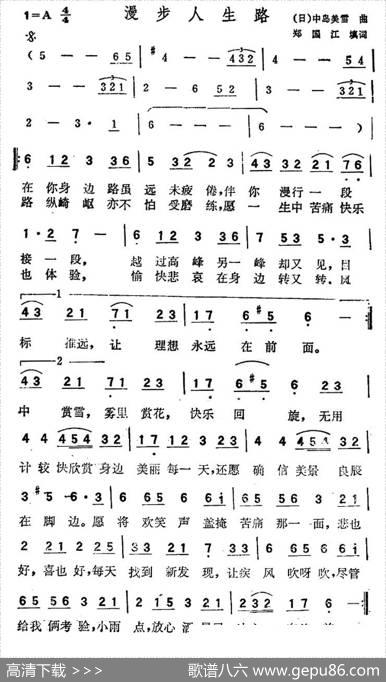 漫步人生路
1=A 4/4
(日)中岛美雪 曲
郑国江填词
(5 - - 65 | #4 - - 432 | 4 - - 54 |
3 - - 321 | 2 - 6 52 | 3 - - 321 |
2 - 3· 1 | 6 - - - | 6 - - -) |
6 12 3 36 | 5 32 2 3 | 43 32 21 76 |
在你身边路虽远未疲倦,伴你漫行一段
路纵崎岖亦不怕受磨练,愿一生中苦痛快乐
1·2 7 - | 6 12 3 36 | 7 53 5·3 |
接一段, 越过高峰另一峰却又见,目
也体验, 愉快悲哀在身边转又转.风
1
43 21 71 23 | 17 6#5 6 - :|
标推远,让理想永远在前面。
2
43 21 71 23 | 17 6#5 6 23 |
中赏雪,雾里赏花,快乐回旋,无用
4 4 454 32 | 12 34 5 32 | 4 4 454 32 |
计较快欣赏身边美丽每一天,还愿确信美景良辰
3 #5 6·3 | 6 65 6 6i | 65 56 3 21 |
在脚边。愿将欢笑声盖掩苦痛那一面,悲也
2 21 2 25 | 33 21 7 13 | 6 65 6 61 |
好,喜也好,每天找到新发现,让疾风吹呀吹,尽管
65 56 3 21 | 2 21 232 | 17 6 - |
给我俩考验,小雨点,放心
高清下载 >>>
歌谱八六_www.gepu86.com